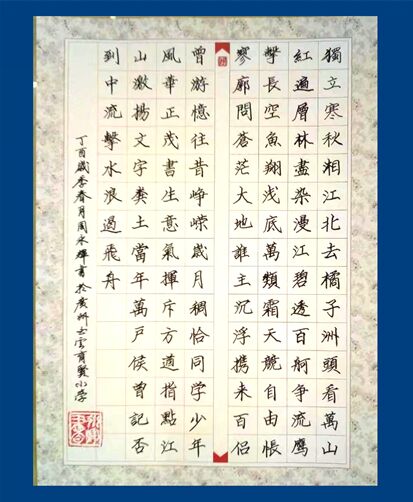 獨立寒秋湘江北去橘子洲頭看萬山
紅遍層林盡染漫江碧透百舸争流鷹
擊長空魚翔浅底萬類霜天競自由悵
寥廓問蒼茫大地誰主沉浮携来百侣
曾游憶往昔崢嶸歲月稠恰同学少年
風華正茂書生意氣揮斥方遒指點江
山激揚文字糞土當年萬户侯曾記否
到中流擊水浪遏飛舟
丁酉歲季春月周永輝書於廣州白雲育賢小学